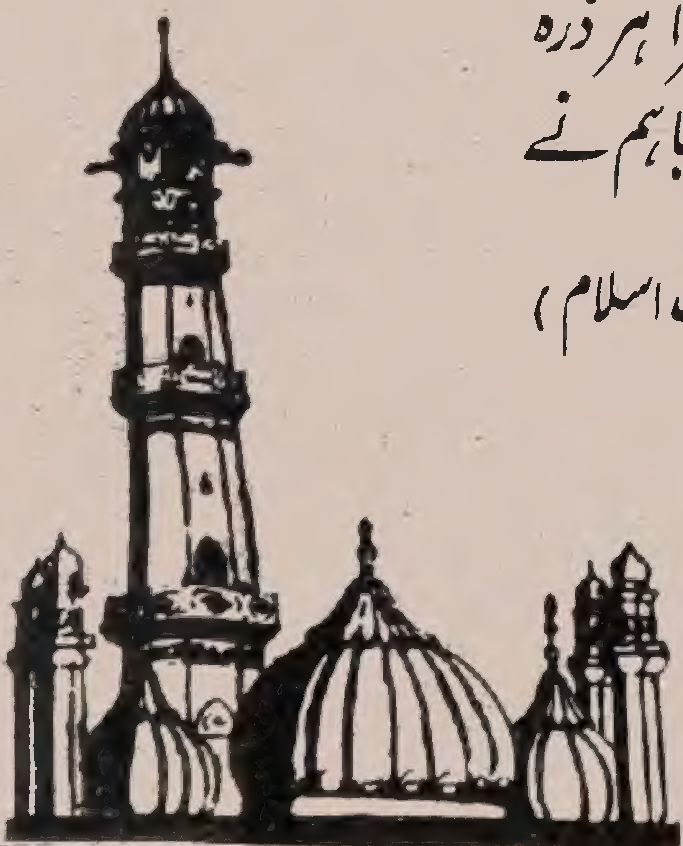 ہر ذرہ
ہم نے
اسلام )